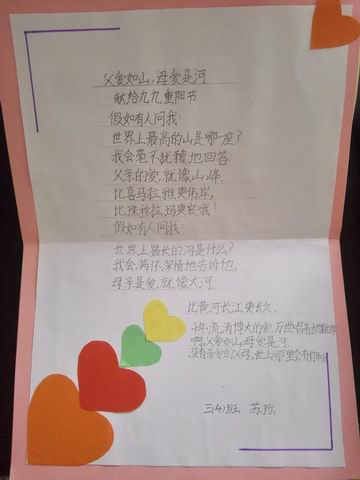 父爱如山,母爱是河
献给九九重阳节
假如有人问我
世界上最高的山是哪一座?
我会毫不犹豫地回答
父亲的爱,就像山峰,
比喜马拉雅更伟岸,
比珠穆拉玛更巍峨!
假如有人问我
世界上最长的河是什么?
我会满怀深情地告诉他,
母亲是爱,就像大河
比黄河长江更长久,
流淌博大的爱,万世唱
啊,父爱如山,母爱是河
没有亲爱的父母,世上哪里会有你
三(4)班 苏